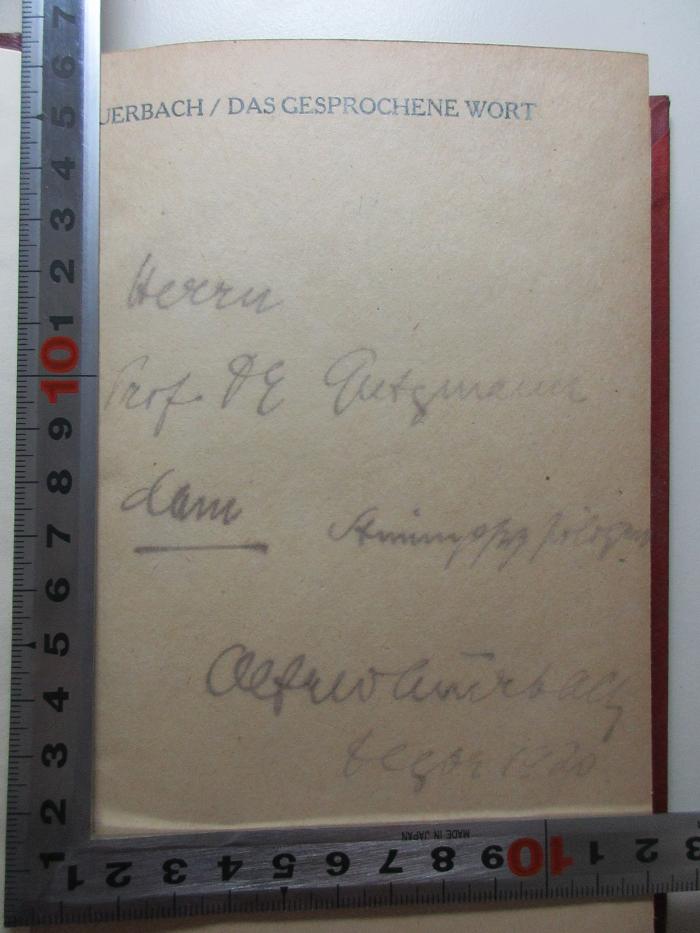 UERBACH / DAS GESPROCHENE WORT
Herrn
Prof. Dr Gutzmann
dem
Alfred Auerbach
1920
7
6
5
4
3
2
1
10
9
8
7
6
5
4
3
2
1
MADE IN JAPAN
1 2 3 4 5 6 7 8 9 10 1 2 3